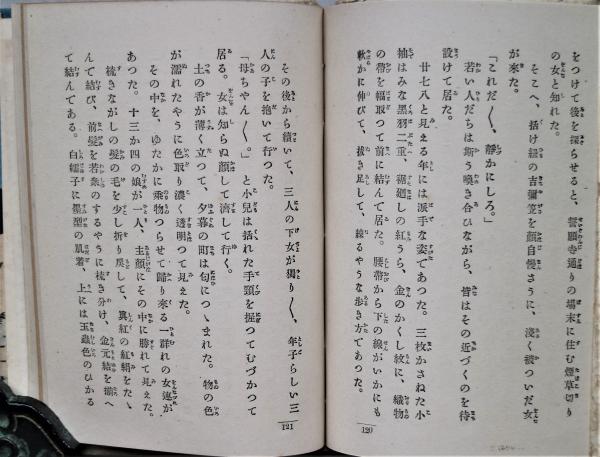 をつけて後を探らせると、誓願寺通りの場末に住む煙草切り
の女と知れた。
そこへ、括け紐の吉彌笠を顔自慢さうに、淺く被ついだ女
が來た。
「これだ〱、靜かにしろ。」
若い人だちは斯う喚き合ひながら、皆はその近づくのを待
設けて居た。
廿七八と見える年には派手な姿であつた。三枚かさねた小
袖はみな黑羽二重、裾廻しの紅うら、金のかくし紋に、織物
の帶を幅取つて前に結んで居た。腰帶から下の線がいかにも
軟かに伸びて、拔き足して、練るやうな歩き方であつた。
120
その後から續いて、三人の下女が獨り〱、年子らしい三
人の子を抱いて行つた。
「母ちやん〱。」と小兒は括れた手頸を握つてむづかつて
居る。女は知らぬ顔して濟して行く。
土の香が薄く立つて、夕暮の町は匂につゝまれた。物の色
が濡れたやうに色取り濃く透明つて見えた。
その中を、ゆたかに乘物つらせて歸り來る一群れの女連が
あつた。十三か四の娘が一人、圭顔にその中に勝れて見えた。
梳きながしの髮の毛を少し折り戻して、眞紅の紅絹をたゝ
んで結び、前髮を若衆のするやうに梳き分け、金元結を揃へ
て結んである。白繻子に墨型の肌着、上には玉蟲色のひかる
121